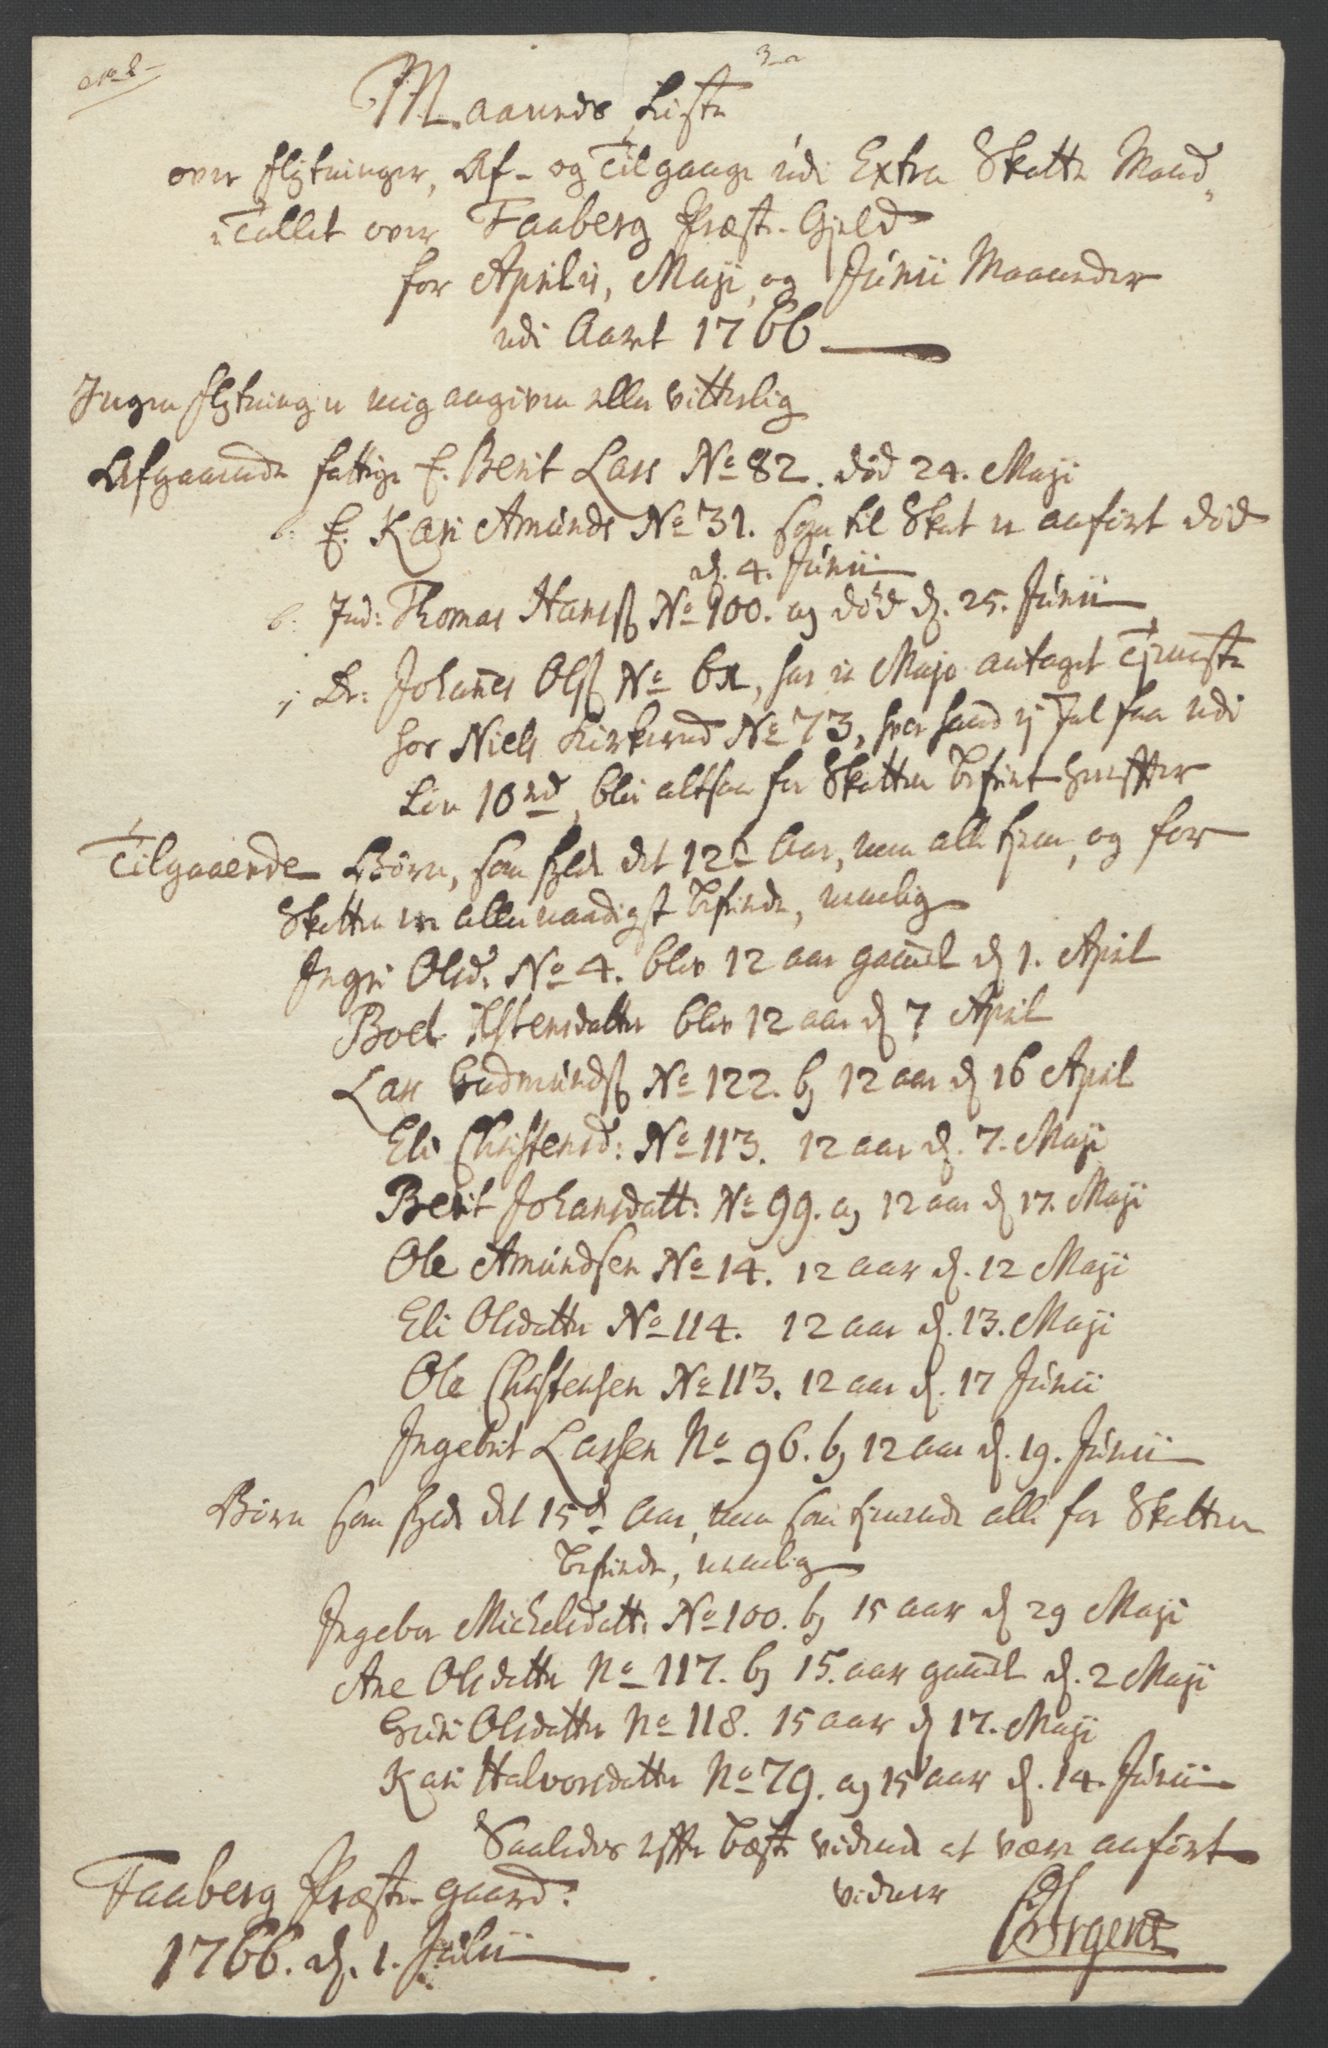 No 2
3
Maaneds Liste
over flytninger, Af- og Tilgange udi Extra Skatte Mand
Tallet over Faaberg Præste-Gjeld
for Aprilis, Maji, og Junii Maaneder
udi Aaret 1766
Ingen flytning er mig angiven eller vitterlig
Afgaaende fattige E. Berit Lars No 82. død 24. Maji
b: E. Kari Amunds No 31. som til Skat er anført død
d. 4. Junii
b. Ind: Thomas Hanss No 100. død d. 25. Junii
Dr: Johannes Olss No har in Majo antaget Tjeneste
hos Niels Kirkerud No 73, hvor hand ej skal faa udi
Løn 10 rd, blir altsaa for Skatten befriet herefter
Tilgaaende Børn, som fylde det 12te Aar, men alle hjem, og for
Skatten er allernaadigst befriede, nemlig
Ingri Olsd: No 4. blev 12 aar gammel d 1. April
Boel Istensdatter blev 12 aar d 7 April
Lars Gudmunds No 122. b 12 aar d 16 April
Eli Christensd: No 113. 12 aar d. 7. Maji
Berit Johansdatt: No 99. a 12 aar d 17. Maji
Ole Amundsen No 14. 12 aar d. 12 Maji
Eli Olsdatter No 114. 12 aar d. 13. Maji
Ole Christensen No 113. 12 aar d. 17 Junii
Ingebrit Larssen No 96. b 12 aar d. 19. Junii
Børn som fylde det 15d Aar, men som hjemme alle for Skatten
befriede, nemlig
Ingebor Michelsdatt: No 100. b 15 aar d 29 Maji
Ane Olsdatter No 117. b 15. aar gammel d. 2 Maji
Guri Olsdatter No 118. 15 aar d 17. Maji
Kari Halvorsdatter No 79. a 15 aar d. 14. Junii
Saaledes efter bæste vidende at være anført
vidner
Faaberg Præste-gaard.
1766. d. 1. Julii